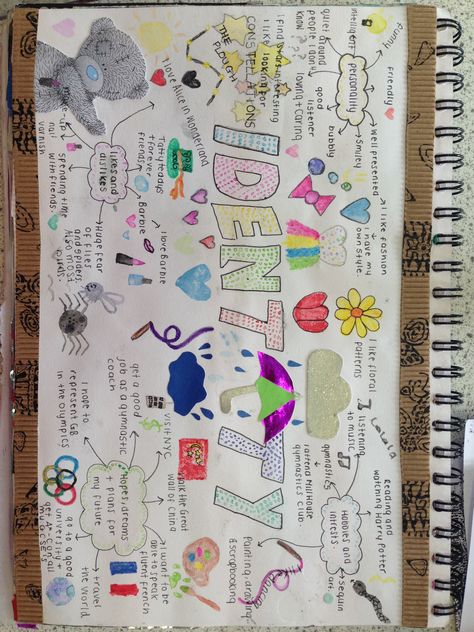 IDENTITY
personality
intelligent
funny
friendly
Well presented
Smiley
bubbly
good
listener
loving + caring
quiet around
people I don't
know???
I find stars interesting
I like looking for
CONSTELLATIONS
THE PLOUGH
I like fashion
I have my
own style.
I like floral
patterns
likes and
dislikes
I love Alice in wonderland
Tatty teddys
+ forever
friends
I love Barbie
Barbie
make-up +
nail
varnish
spending time
with friends.
Huge fear
of flies
and spiders.
Also most
birds.
Hobbies and
intrests
listening
to music
Lalala
Reading and
watching Harry Potter
sequin
art.
gymnastics
I attend Mill House
gymnastics club.
Painting, drawing
& scrapbooking
Hopes, dreams
+ plans for
my future
get a good
job as a gymnastic
coach
visit NYC
walk the Great
wall of China
I want to be
able to speak
fluent french
travel
the world
go to a good
university +
I hope to
represent GB
in the olympics